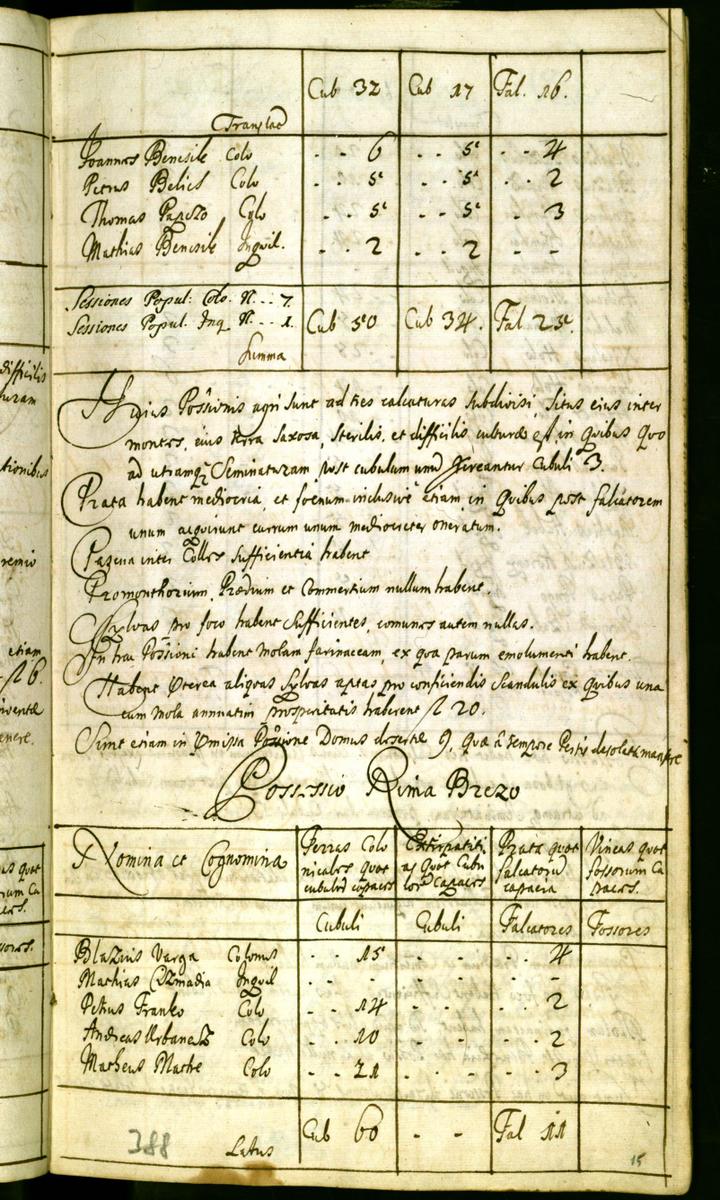 Cub 32 Cub 17 Fal. 16.
Translat
Joannes Bencsik Colo - - 6 - - 5 - - 4
Petrus Belics Colo - - 5 - - 5 - - 2
Thomas Colo - - 5 - - 5 - - 3
Mathias Bencsik Inqvil. - - 2 - - 2 - -
Sessiones Popul: Colo. N. - - 7.
Sessiones Popul. Inq N. - - 1. Cub 50 Cub 34. Fal 25.
Summa
Hujus Possionis agri sunt ad tres calcaturas subdivisi, situs eius inter
montes, eius terra saxosa, sterilis, et difficilis culturæ est, in quibus quo
ad utramq; seminaturam, post cubulum unū procreantur Cubuli 3.
Prata habent mediocria, et foenum inclusivè etiam, in quibus post falcatorem
unum acqvirunt currum unum mediocriter oneratum.
Pascua inter Colles sufficientia habent
Promonthorium, Prædium et Commertium nullum habent.
Sylvas pro foco habent sufficientes, comunes autem nullas.
In hac Possioni habent Molam farinaceam, ex qua parum emolumenti habent.
Habent Pterea aliquas sylvas aptas pro conficiendis scandulis ex quibus una
cum mola annuatim prosperitatis haberent fl 20.
Sunt etiam in Pmissa Possione Domus desertæ 9, quæ à tempore Pestis desolatæ
Possessio Rima Brezo
Nomina et Cognomina
Terras Colonicales quot cubulorū capaces
Extirpatitias quot Cubulorū Capaces
Prata quot falcatorū capacia
Vineas quot fossorum Capaces.
Cubuli Cubuli Falcatores Fossores
Blazius Varga Colonus - - 15 - - - - 4
Mathias Csizmadia Inqvil - - - - - -
Petrus Franko Colo - - 14 - - - - 2
Andreas Urbanecz Colo - - 10 - - - - 2
Matheus Mathe Colo - - 21 - - - - 3
Latus Cub 60 - - Fal 11
388
15